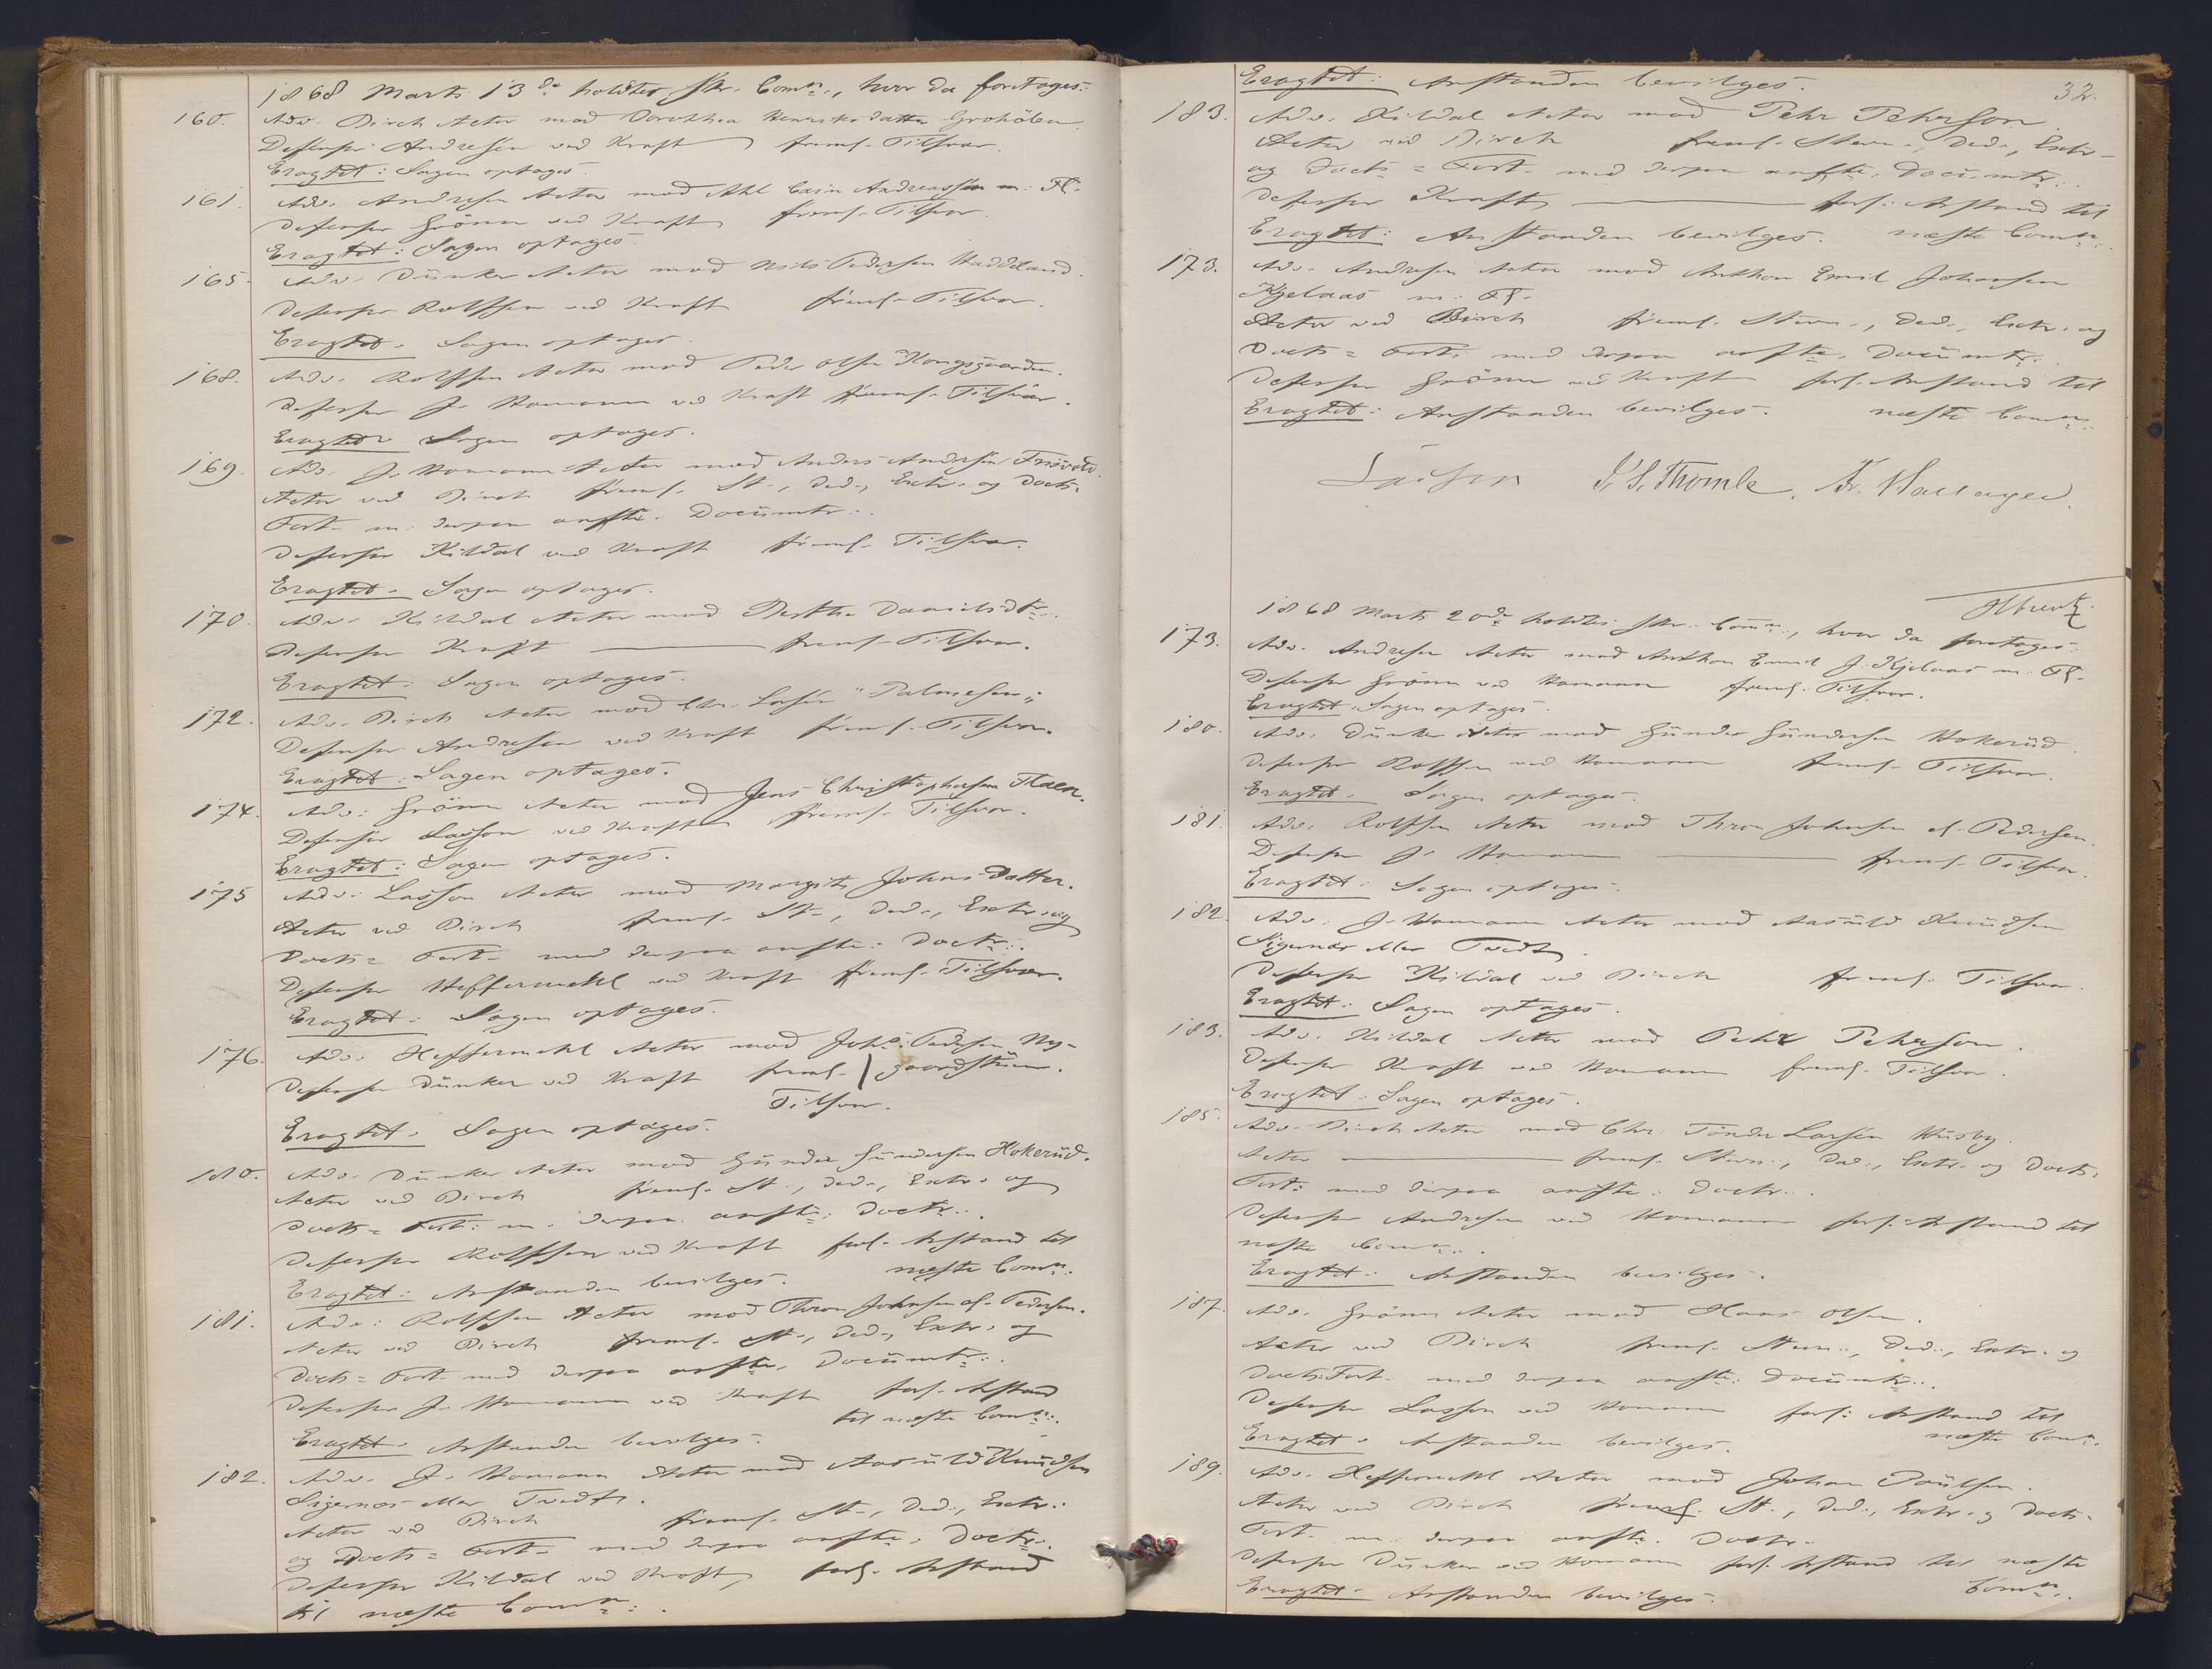 1868 Marts 13de holdtes skr. Comn:, hvor da foretoges:
160. Adv. Birch Actor mod Dorothea Henriksdatter Grohölen
Defensor Andresen ved Kraft freml. Tilsvar.
Eragtet: Sagen optages.
161. Adv. Andresen Actor mod Andreassen m. Fl.
Defensor Grönn ved Kraft freml. Tilsvar.
Eragtet: Sagen optages.
165. Adv. Dünker Actor mod Nils Pedersen Haddeland.
Defensor Rolfsen ved Kraft freml. Tilsvar.
Eragtet: Sagen optages.
168. Adv. Rolfsen Actor mod Peder Olsen Kongsgaarden.
Defensor J. Homann ved Kraft freml. Tilsvar.
Eragtet Sagen optages.
169. Adv. J. Homann Actor mod Anders Andersen
Actor ved Birch freml. St., Ded., Extr. og Docts.
Fort. m. derpaa anfte. Documtr:.
Defensor Kildal ved Kraft freml. Tilsvar.
Eragtet. Sagen optages.
170. Adv. Kildal Actor mod Berthe Danielsdtr:.
Defensor Kraft ——— freml. Tilsvar.
Eragtet: Sagen optages.
172. Adv. Birch Actor mod Chr. Larsen "Palmesen"
Defensor Andresen ved Kraft freml. Tilsvar.
Eragtet: Sagen optages.
174. Adv: Grönn Actor mod Jens Christophersen Flaen.
Defensor Lasson ved Kraft freml. Tilsvar.
Eragtet: Sagen optages.
175 Adv. Lasson Actor mod Margit Johns Datter.
Actor ved Birch freml. St., Ded., Extr. og
Docts= Fort. med derpaa anfte: Doctr:.
Defensor Heffermehl ved Kraft freml. Tilsvar.
Eragtet: Sagen optages.
176. Adv. Heffermehl Actor mod Johs. Pedersen Ny-
Defensor Dünker ved Kraft freml. / gaardstuen.
Tilsvar.
Eragtet. Sagen optages.
180. Adv. Dünker Actor mod Gunder Gundersen Hokerüd.
Actor ved Birch freml. St., Ded., Extr. og
Docts= Fort: m. derpaa anfte: Doctr:.
Defensor Rolfsen ved Kraft forl. Anstand til
Eragtet: Anstanden bevilges. næste Comn:.
181. Adv: Rolfsen Actor mod Thron Johnsen el. Pedersen.
Actor ved Birch freml. St., Ded., Extr. og
Docts= Fort. med derpaa anfte. Documtr:.
Defensor J. Homann ved Kraft forl. Anstand
til næste Comn:.
Eragtet. Anstanden bevilges.
182. Adv. J. Homann Actor mod Aasüld Knüdsen
Sigernes eller Tvedt.
Actor ved Birch freml. St., Ded., Extr.
og Docts= Fort. med derpaa anfte. Doctr:.
Defensor Kildal ved Kraft, forl. Anstand
til næste Comn:.
32.
Eragtet: Anstanden bevilges.
183. Adv. Kildal Actor mod Pehr Pehrson
Actor ved Birch freml. Stevn., Ded., Extr.
og Docts= Fort. med derpaa anfte. Documtr:.
Defensor Kraft ——— forl: Anstand til
Eragtet: Anstanden bevilges. næste Comn:.
173. Adv. Andresen Actor mod Anthon Emil Johansen
Kjelaas m. Fl.
Actor ved Birch freml. Stevn., Ded., Extr. og
Docts= Fort. med derpaa anfte. Documtr:.
Defensor Grönn ved Kraft forl. Anstand til
Eragtet: Anstanden bevilges. næste Comn:.
Lasson F. S. Thomle. Fr. Hallager.
1868 Marts 20de holdtes skr. Comn:, hvor da foretoges:
173. Adv. Andresen Actor mod Anthon Emil J. Kjelaas m. Fl.
Defensor Grönn ved Homann freml. Tilsvar.
Eragtet. Sagen optages.
180. Adv. Dünker Actor mod Günder Gündersen Hokerüd.
Defensor Rolfsen ved Homann freml. Tilsvar.
Eragtet. Sagen optages.
181. Adv. Rolfsen Actor mod Thron Johnsen el. Pedersen.
Defensor J. Homann ——— freml. Tilsvar.
Eragtet: Sagen optages.
182. Adv. J. Homann Actor mod Aasüld Knüdsen
Sigernes eller Tvedt.
Defensor Kildal ved Birch freml. Tilsvar.
Eragtet: Sagen optages.
183. Adv. Kildal Actor mod Pehr Pehrson.
Defensor Kraft ved Homann freml. Tilsvar.
Eragtet. Sagen optages.
185. Adv. Birch Actor mod Chr. Tönder Larsen Hüsby.
Actor ——— freml. Stevn:, Ded., Extr. og Docts.
Fort: med derpaa anfte: Doctr:.
Defensor Andresen ved Homann forl: Anstand til
næste Comn:.
Eragtet: Anstanden bevilges.
187. Adv. Grönn Actor mod Hans Olsen.
Actor ved Birch freml. Stevn:, Ded:, Extr. og
Docts: Fort. med derpaa anfte: Documtr:.
Defensor Lasson ved Homann forl: Anstand til
Eragtet. Anstanden bevilges. næste Comn:.
189. Adv. Heffermehl Actor mod Johan Paülsen.
Actor ved Birch freml. St., Ded., Extr. og Docts.
Fort. m. derpaa anfte. Doctr:.
Defensor Dünker ved Homann forl. Anstand til næste
Eragtet. Anstanden bevilges. Comn:.